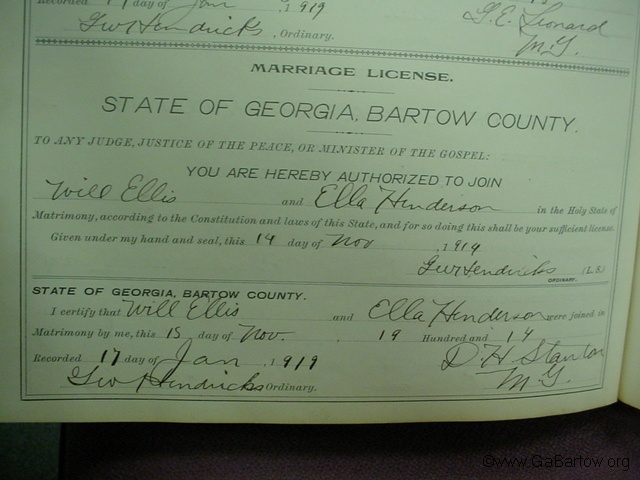 Recorded 17 day of Jan , 1919
G. E. Leonard
Gw Hendricks , Ordinary.
M.G.
MARRIAGE LICENSE.
STATE OF GEORGIA, BARTOW COUNTY.
TO ANY JUDGE, JUSTICE OF THE PEACE, OR MINISTER OF THE GOSPEL:
YOU ARE HEREBY AUTHORIZED TO JOIN
Will Ellis and Ella Henderson in the Holy State of
Matrimony, according to the Constitution and laws of this State, and for so doing this shall be your sufficient license.
Given under my hand and seal, this 14 day of Nov , 1914
Gw Hendricks (L. S.)
ORDINARY.
STATE OF GEORGIA, BARTOW COUNTY.
I certify that Will Ellis and Ella Henderson were joined in
Matrimony by me, this 15 day of Nov. , 19 Hundred and 14
Recorded 17 day of Jan , 1919
D. H. Stanton
Gw Hendricks Ordinary.
M.G.
©www.GaBartow.org